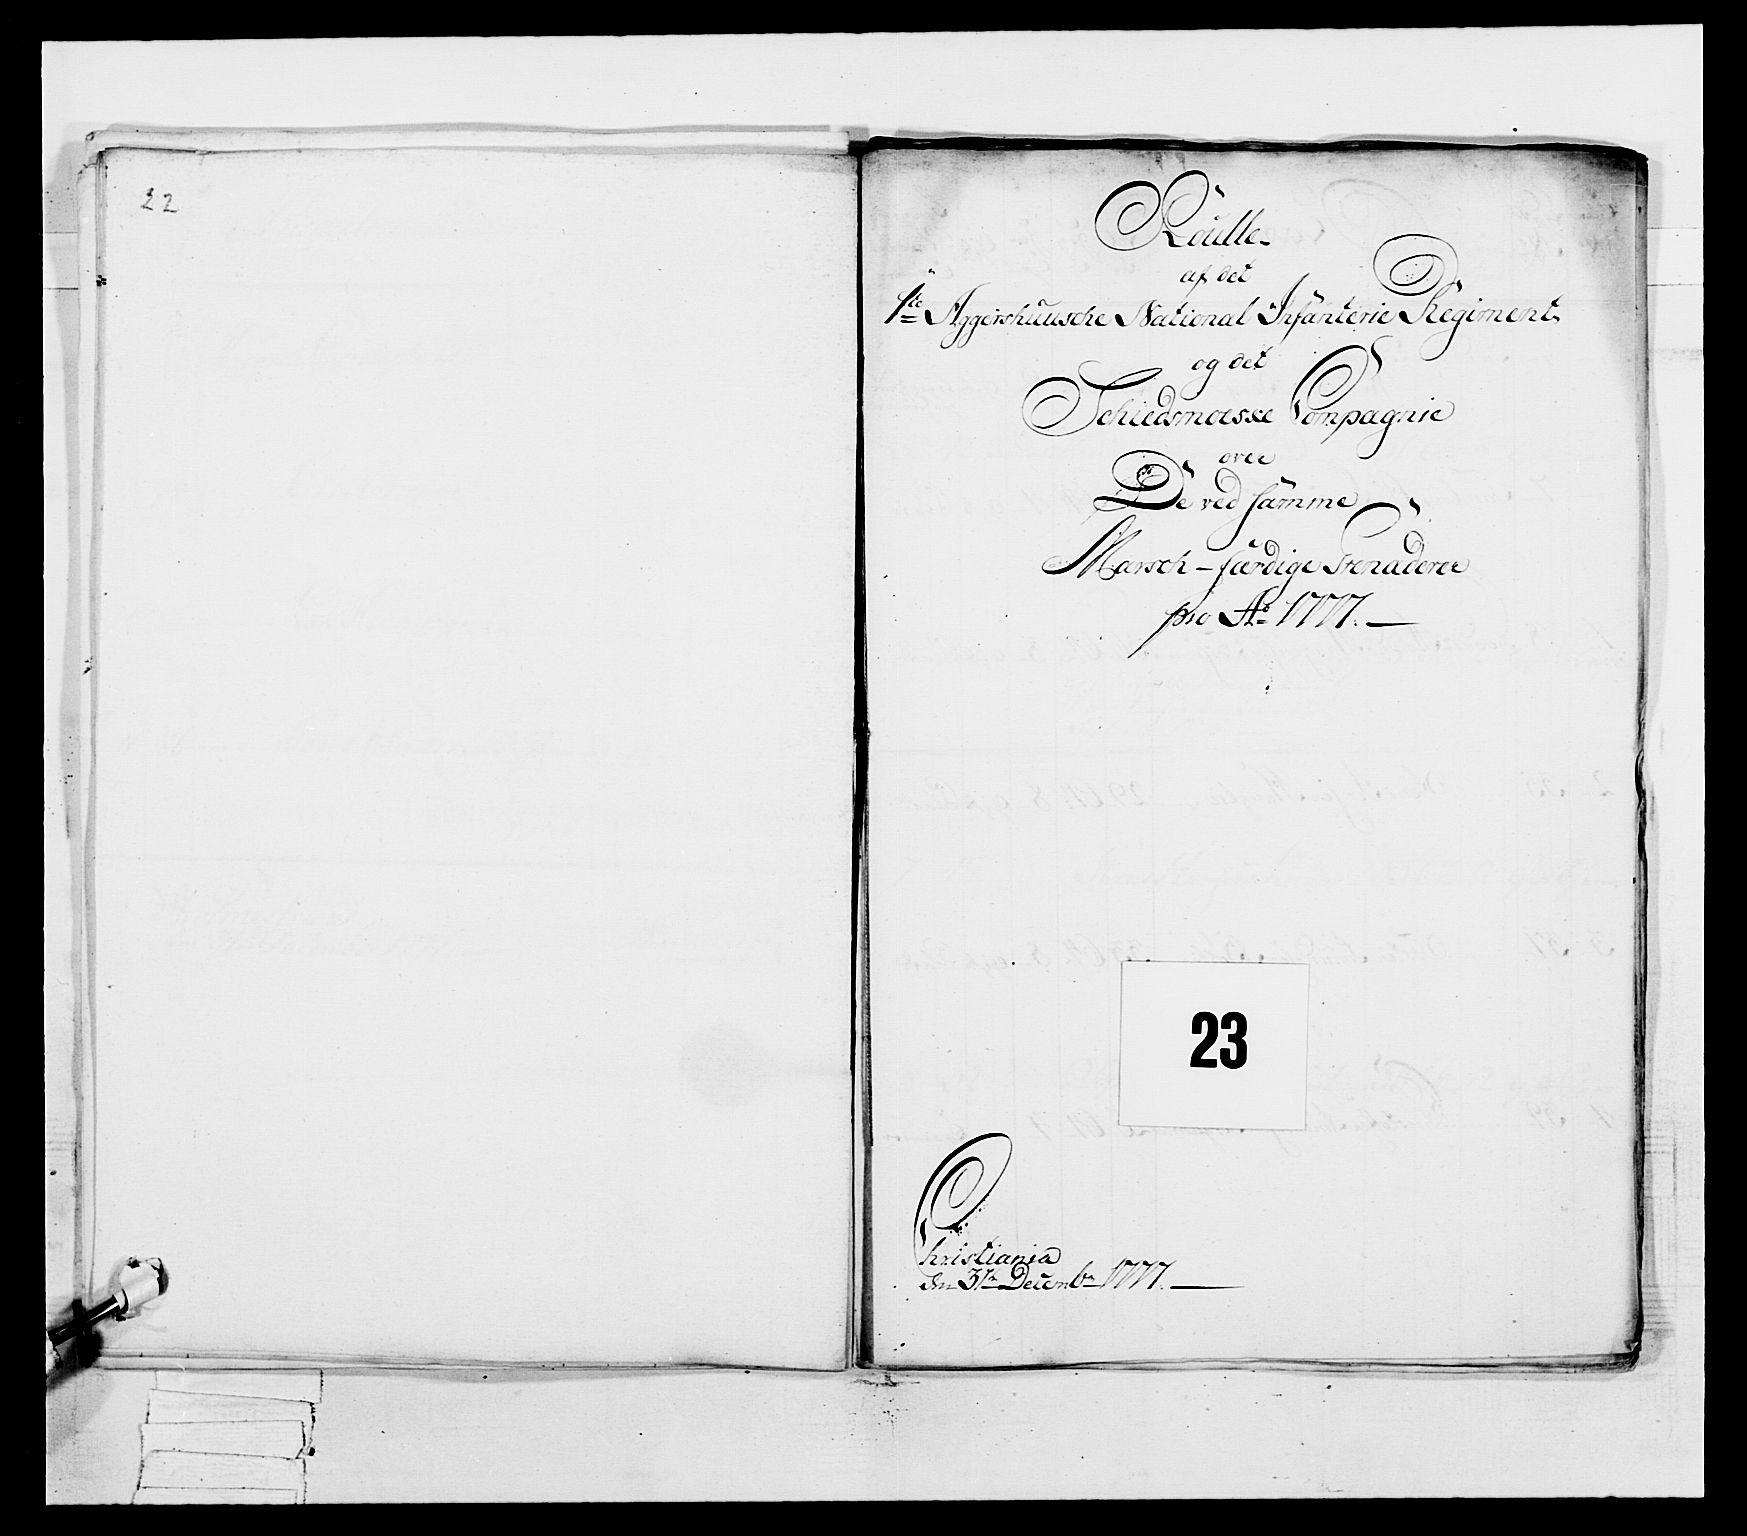 22
Roulle
af det
1te Aggershuusche National Infanterie Regiment
og det
Schiedsmoeske Compagnie
over
De ved samme
Marsch-færdige Grenaderer
pro Ao 1777.
23
Christiania
den 31te Decembr 1777.